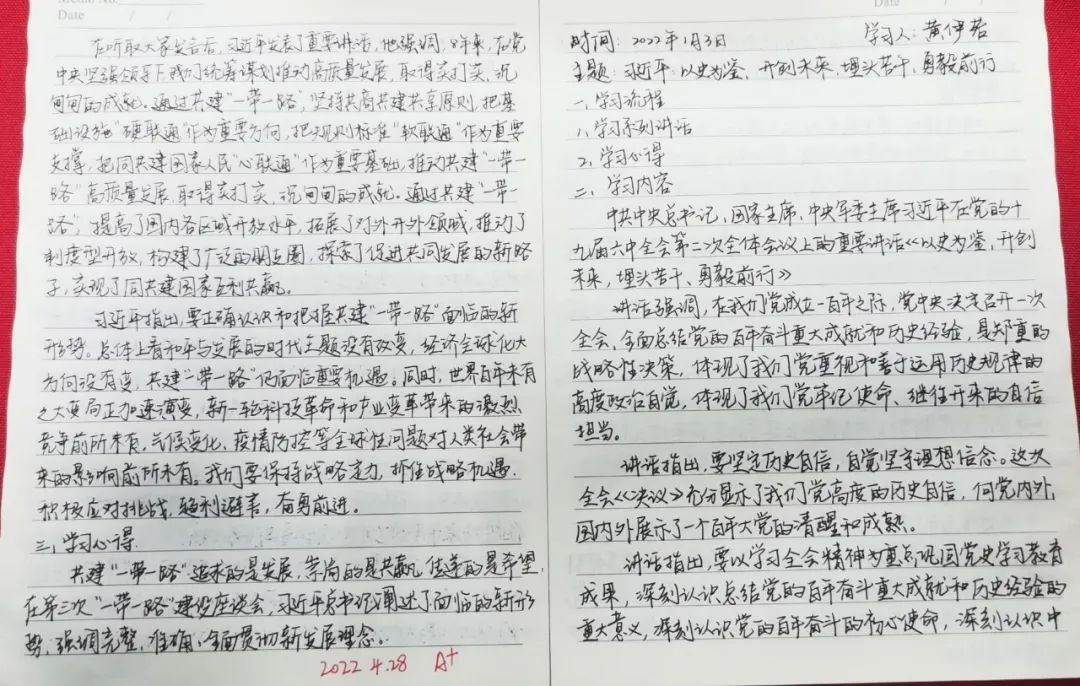 Memo No.
Date / /
在听取大家发言后,习近平发表了重要讲话,他强调,8年来,在党
中央坚强领导下我们统筹谋划推动高质量发展,取得实打实,沉
甸甸的成就。通过共建“一带一路”,坚持共商共建共享原则,把基
础设施“硬联通”作为重要方向,把规则标准“软联通”作为重要
支撑,把同共建国家人民“心联通”作为重要基础,推动共建“一带一
路”高质量发展,取得实打实,沉甸甸的成就。通过共建“一带一
路”,提高了国内各区域开放水平,拓展了对外开外领域,推动了
制度型开放,构建了广泛的朋友圈,探索了促进共同发展的新路
子,实现了同共建国家互利共赢。
习近平指出,要正确认识和把握共建“一带一路”面临的新
形势。总体上看和平与发展的时代主题没有改变,经济全球化大
方向没有变,共建“一带一路”仍面临重要机遇。同时,世界百年未有
之大变局正加速演变,新一轮科技革命和产业变革带来的激烈
竞争前所未有,气候变化、疫情防控等全球性问题对人类社会带
来的影响前所未有。我们要保持战略定力,抓住战略机遇,
积极应对挑战,趋利避害,奋勇前进。
三、学习心得
共建“一带一路”追求的是发展,崇尚的是共赢,传递的是希望,
在第三次“一带一路”建设座谈会,习近平总书记阐述了面临的新形
势,强调完整、准确、全面贯彻新发展理念。
2022 4.28 A+
时间:2022年1月3日 学习人:黄伊若
主题:习近平:以史为鉴、开创未来,埋头苦干、勇毅前行
一、学习流程
1、学习系列讲话
2、学习心得
二、学习内容
中共中央总书记、国家主席、中央军委主席习近平在党的十
九届六中全会第二次全体会议上的重要讲话《以史为鉴,开创
未来,埋头苦干、勇毅前行》
讲话强调,在我们党成立一百年之际,党中央决定召开一次
全会,全面总结党的百年奋斗重大成就和历史经验,是郑重的
战略性决策,体现了我们党重视和善于运用历史规律的
高度政治自觉,体现了我们党牢记使命、继往开来的自信
担当。
讲话指出,要坚定历史自信,自觉坚守理想信念。这次
全会《决议》充分显示了我们党高度的历史自信,向党内外,
国内外展示了一个百年大党的清醒和成熟。
讲话指出,要以学习全会精神为重点巩固党史学习教育
成果,深刻认识总结党的百年奋斗重大成就和历史经验的
重大意义,深刻认识党的百年奋斗的初心使命,深刻认识中